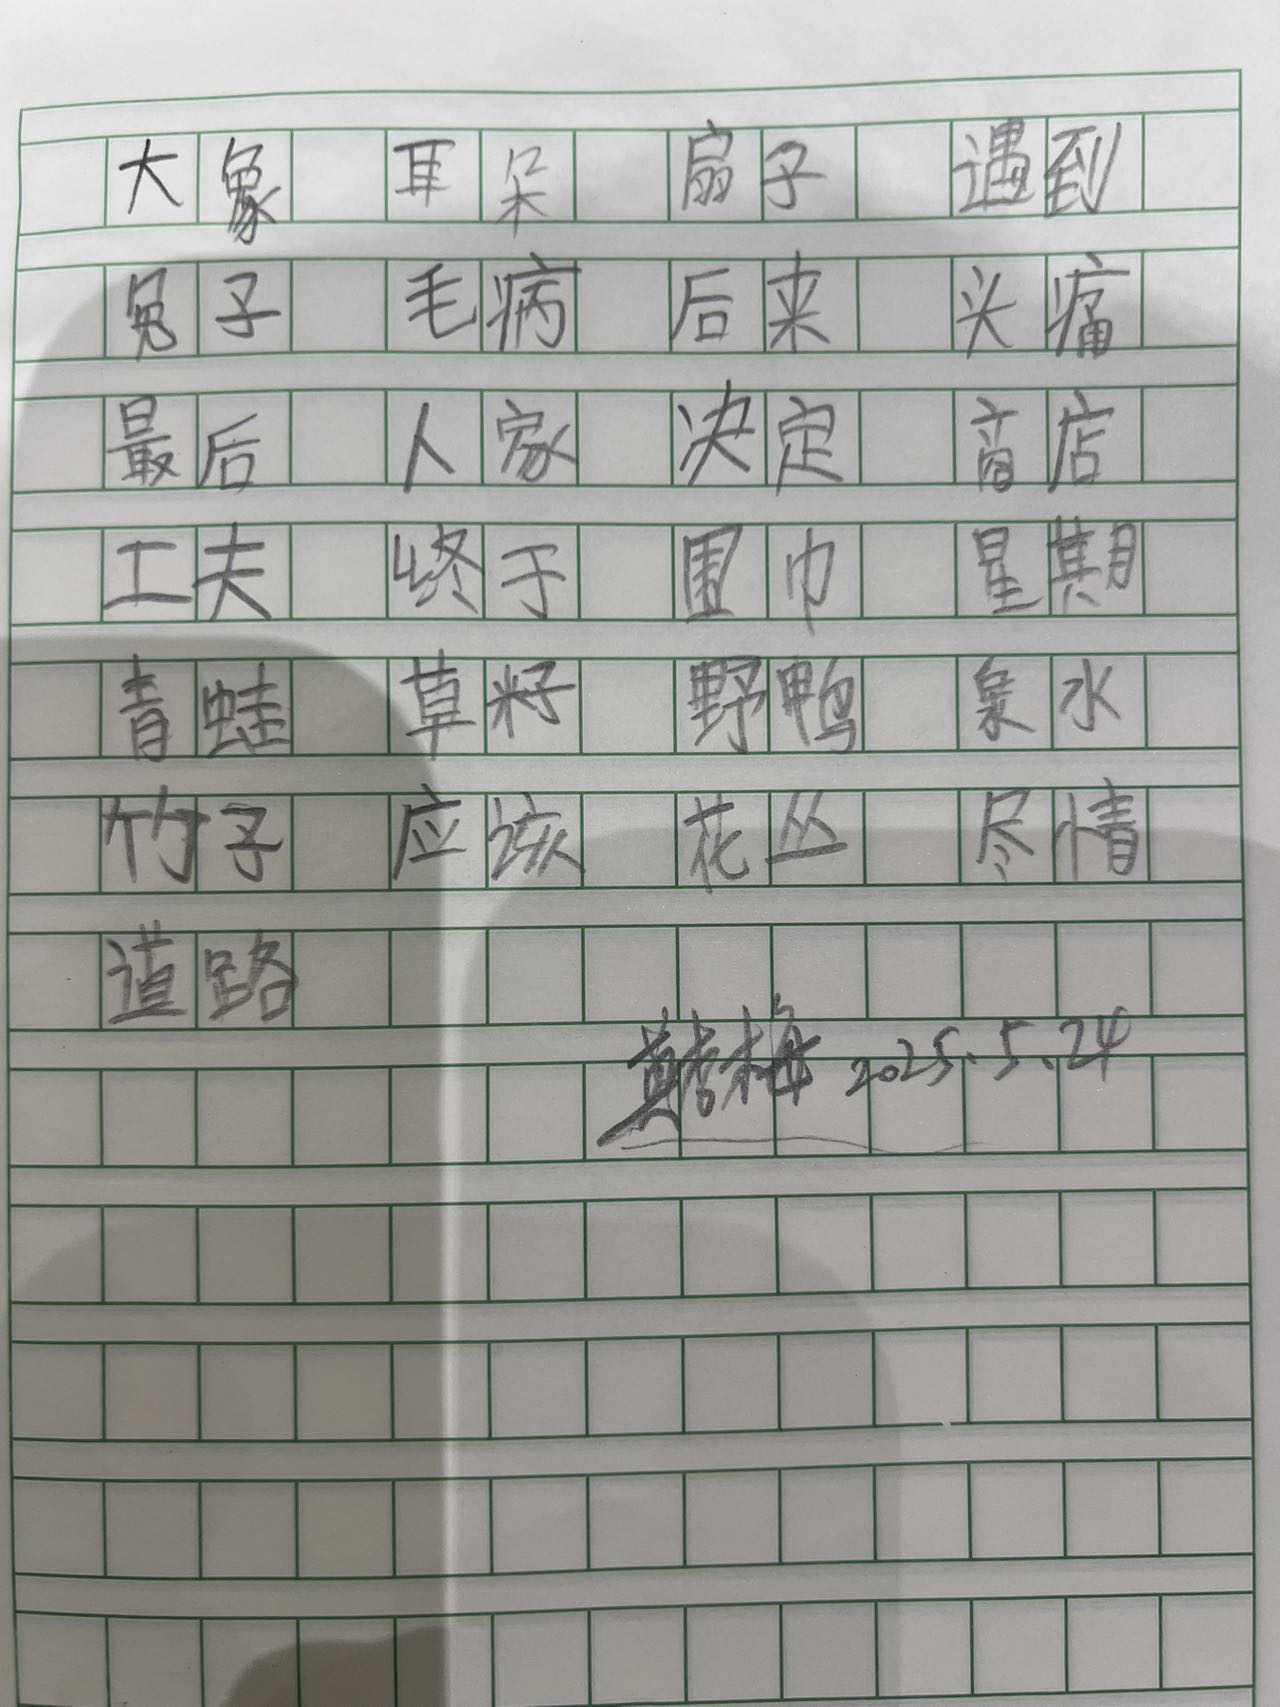 大象 耳朵 扇子 遇到
兔子 毛病 后来 头痛
最后 人家 决定 商店
工夫 终于 围巾 星期
青蛙 草籽 野鸭 泉水
竹子 应该 花丛 尽情
道路
梅 2025.5.24